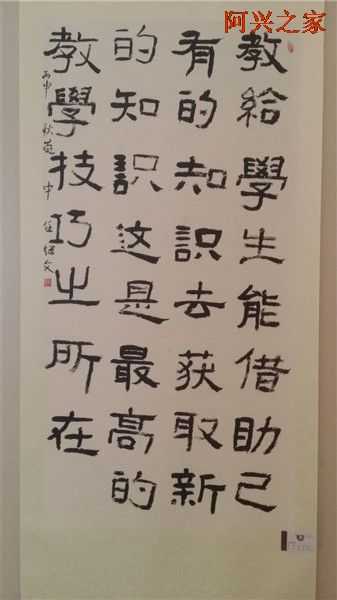 阿兴之家
教給學生能借助已
有的知識去获取新
的知識这是最高的
教學技巧之所在
丙申秋